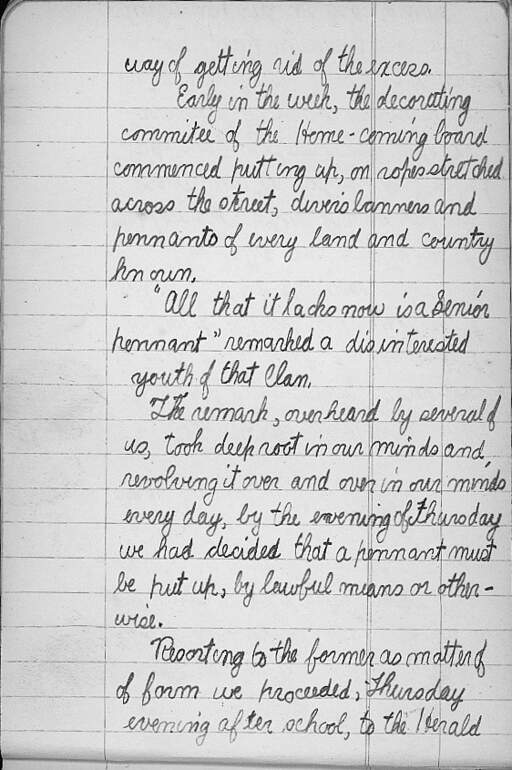 way of getting rid of the excess.
Early in the week, the decorating
commitee of the Home-coming board
commenced putting up, on ropes stretched
across the street, divers banners and
pennants of every land and country
known.
"All that it lacks now is a Senior
pennant" remarked a disinterested
youth of that Clan.
The remark, overheard by several of
us, took deep root in our minds and,
revolving it over and over in our minds
every day, by the evening of Thursday
we had decided that a pennant must
be put up, by lawful means or other-
wise.
Resorting to the former as matter of
of form we proceeded, Thursday
evening after school, to the Herald